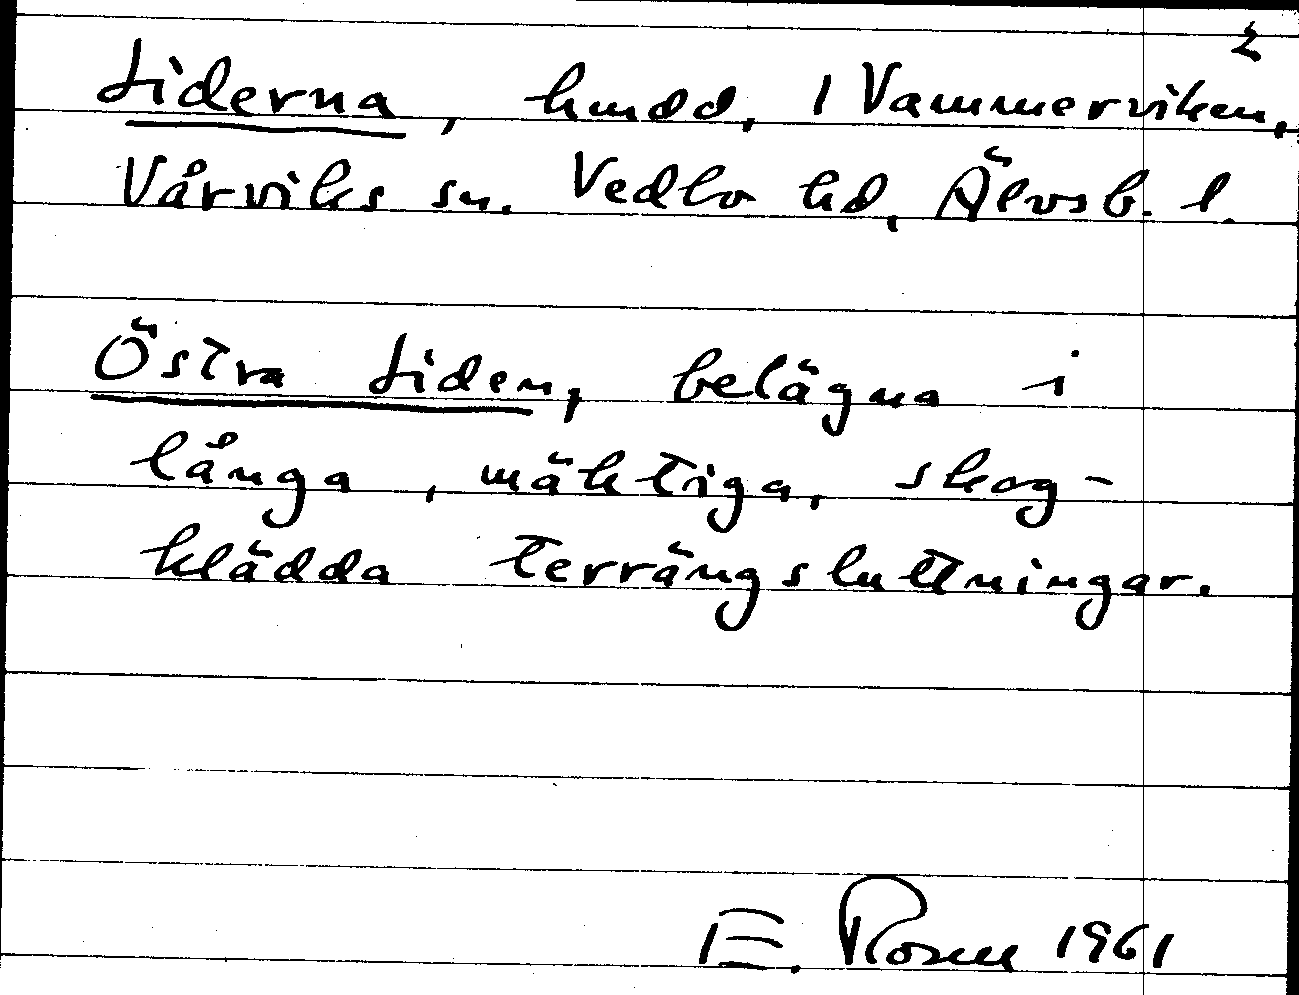 2
Liderna, hmdd, 1 Vammerviken,
Vårviks sn. Vedbo hd, Älvsb. l.
Östra Liden, belägna i
långa, mäktiga, skog-
klädda terrängsluttningar.
E. Rosell 1961